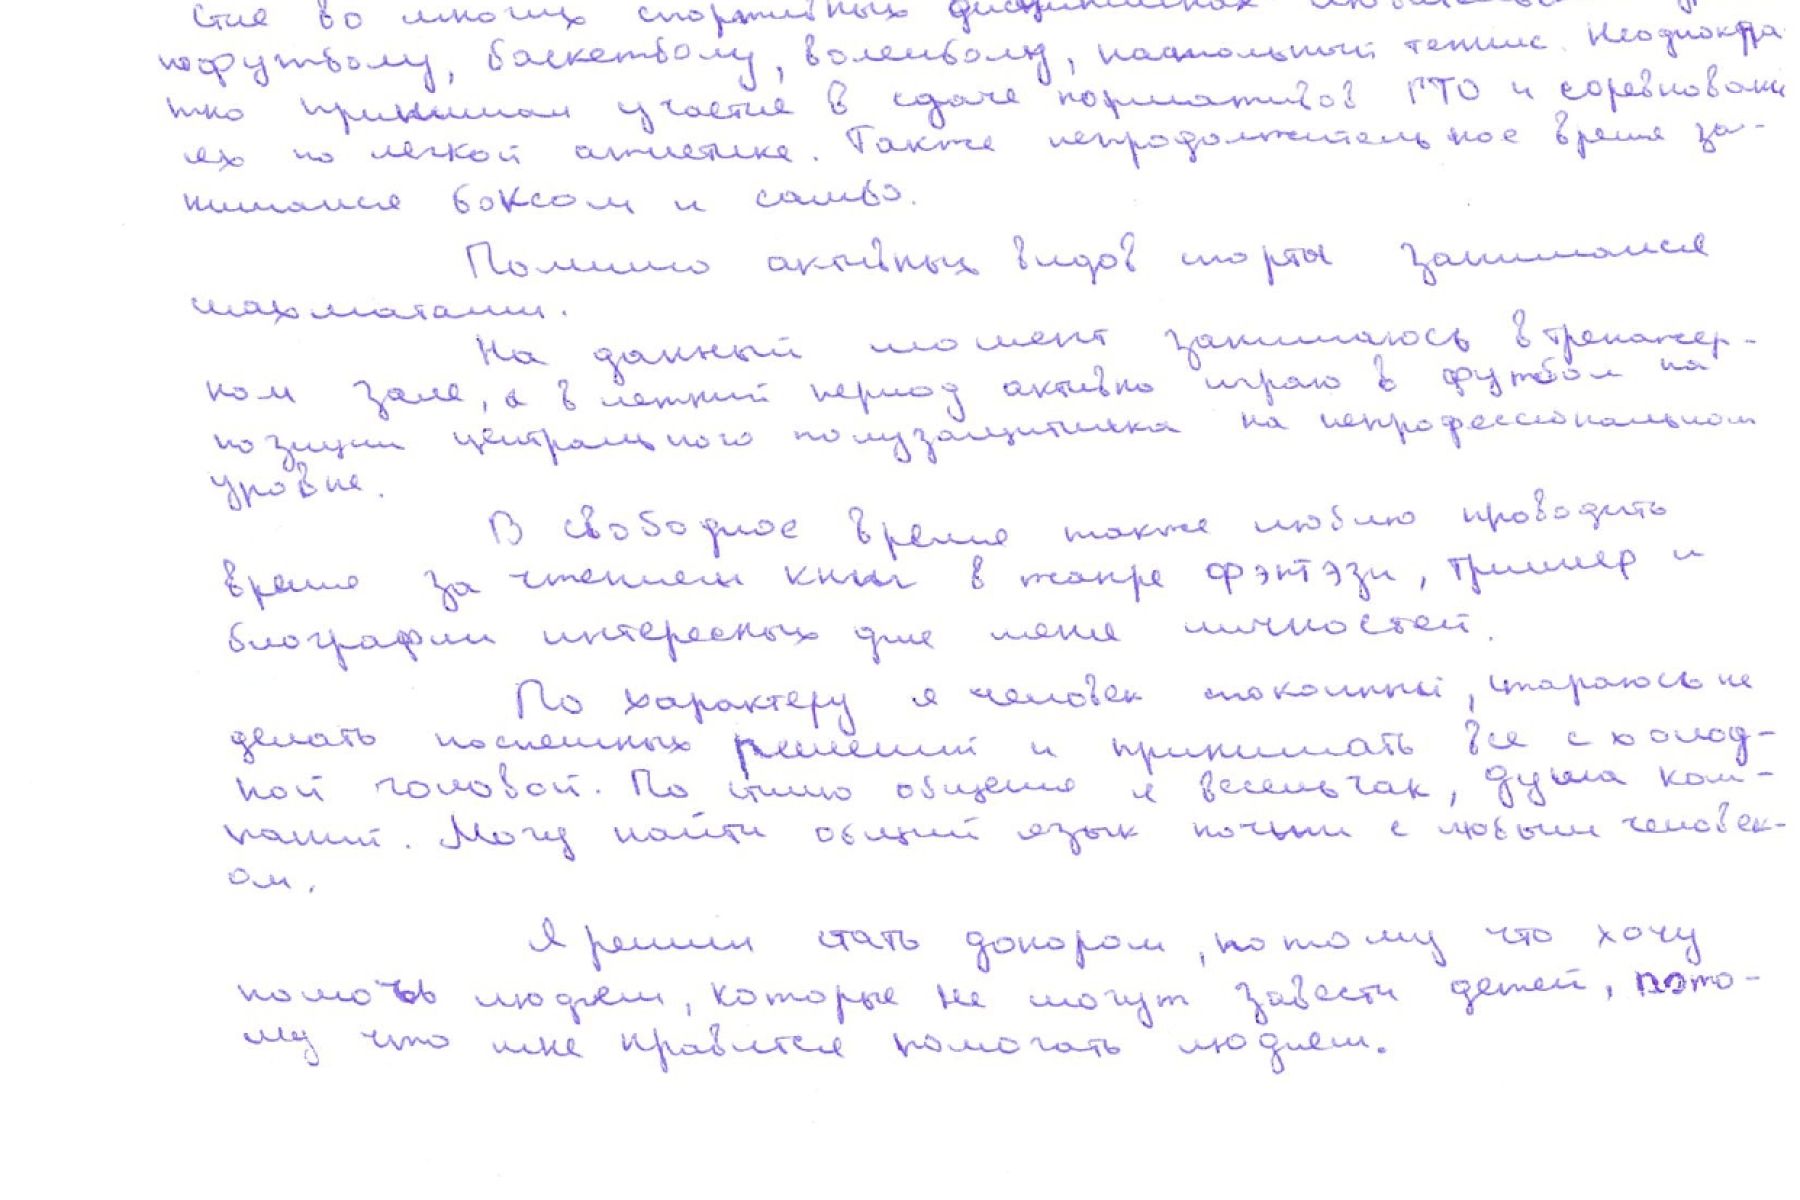 стие во многих спортивных дисциплинах
по футболу, баскетболу, волейболу, настольный теннис. Неоднокра
тно принимал участие в сдаче нормативов ГТО и соревновани
ях по легкой атлетике. Также непродолжительное время за-
нимался боксом и самбо.
Помимо активных видов спорта занимался
шахматами.
На данный момент занимаюсь в тренажер-
ном зале, а в летний период активно играю в футбол на
позиции центрального полузащитника на непрофессиональном
уровне.
В свободное время также люблю проводить
время за чтением книг в жанре фэнтэзи, триллер и
биографии интересных для меня личностей.
По характеру я человек спокойный, стараюсь не
делать поспешных решений и принимать все с холод-
ной головой. По стилю общения я весельчак, душа ком-
паний. Могу найти общий язык почти с любым человек-
ом.
Я решил стать донором, потому что хочу
помочь людям, которые не могут завести детей, пото-
му что мне нравится помогать людям.